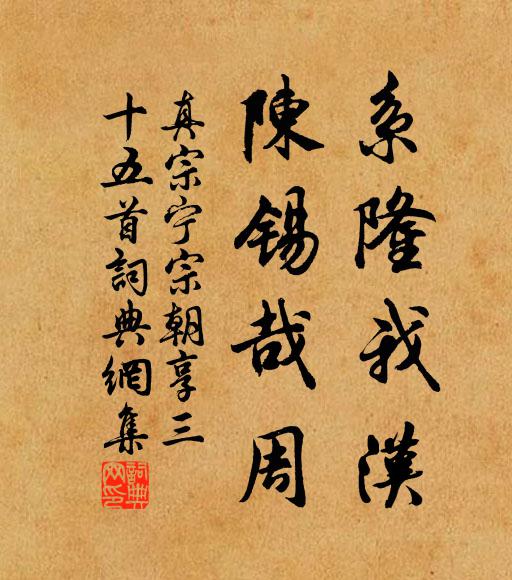 系隆我漢
陳錫哉周
真宗宁宗朝享三
十五首詞典網集
詞典网印